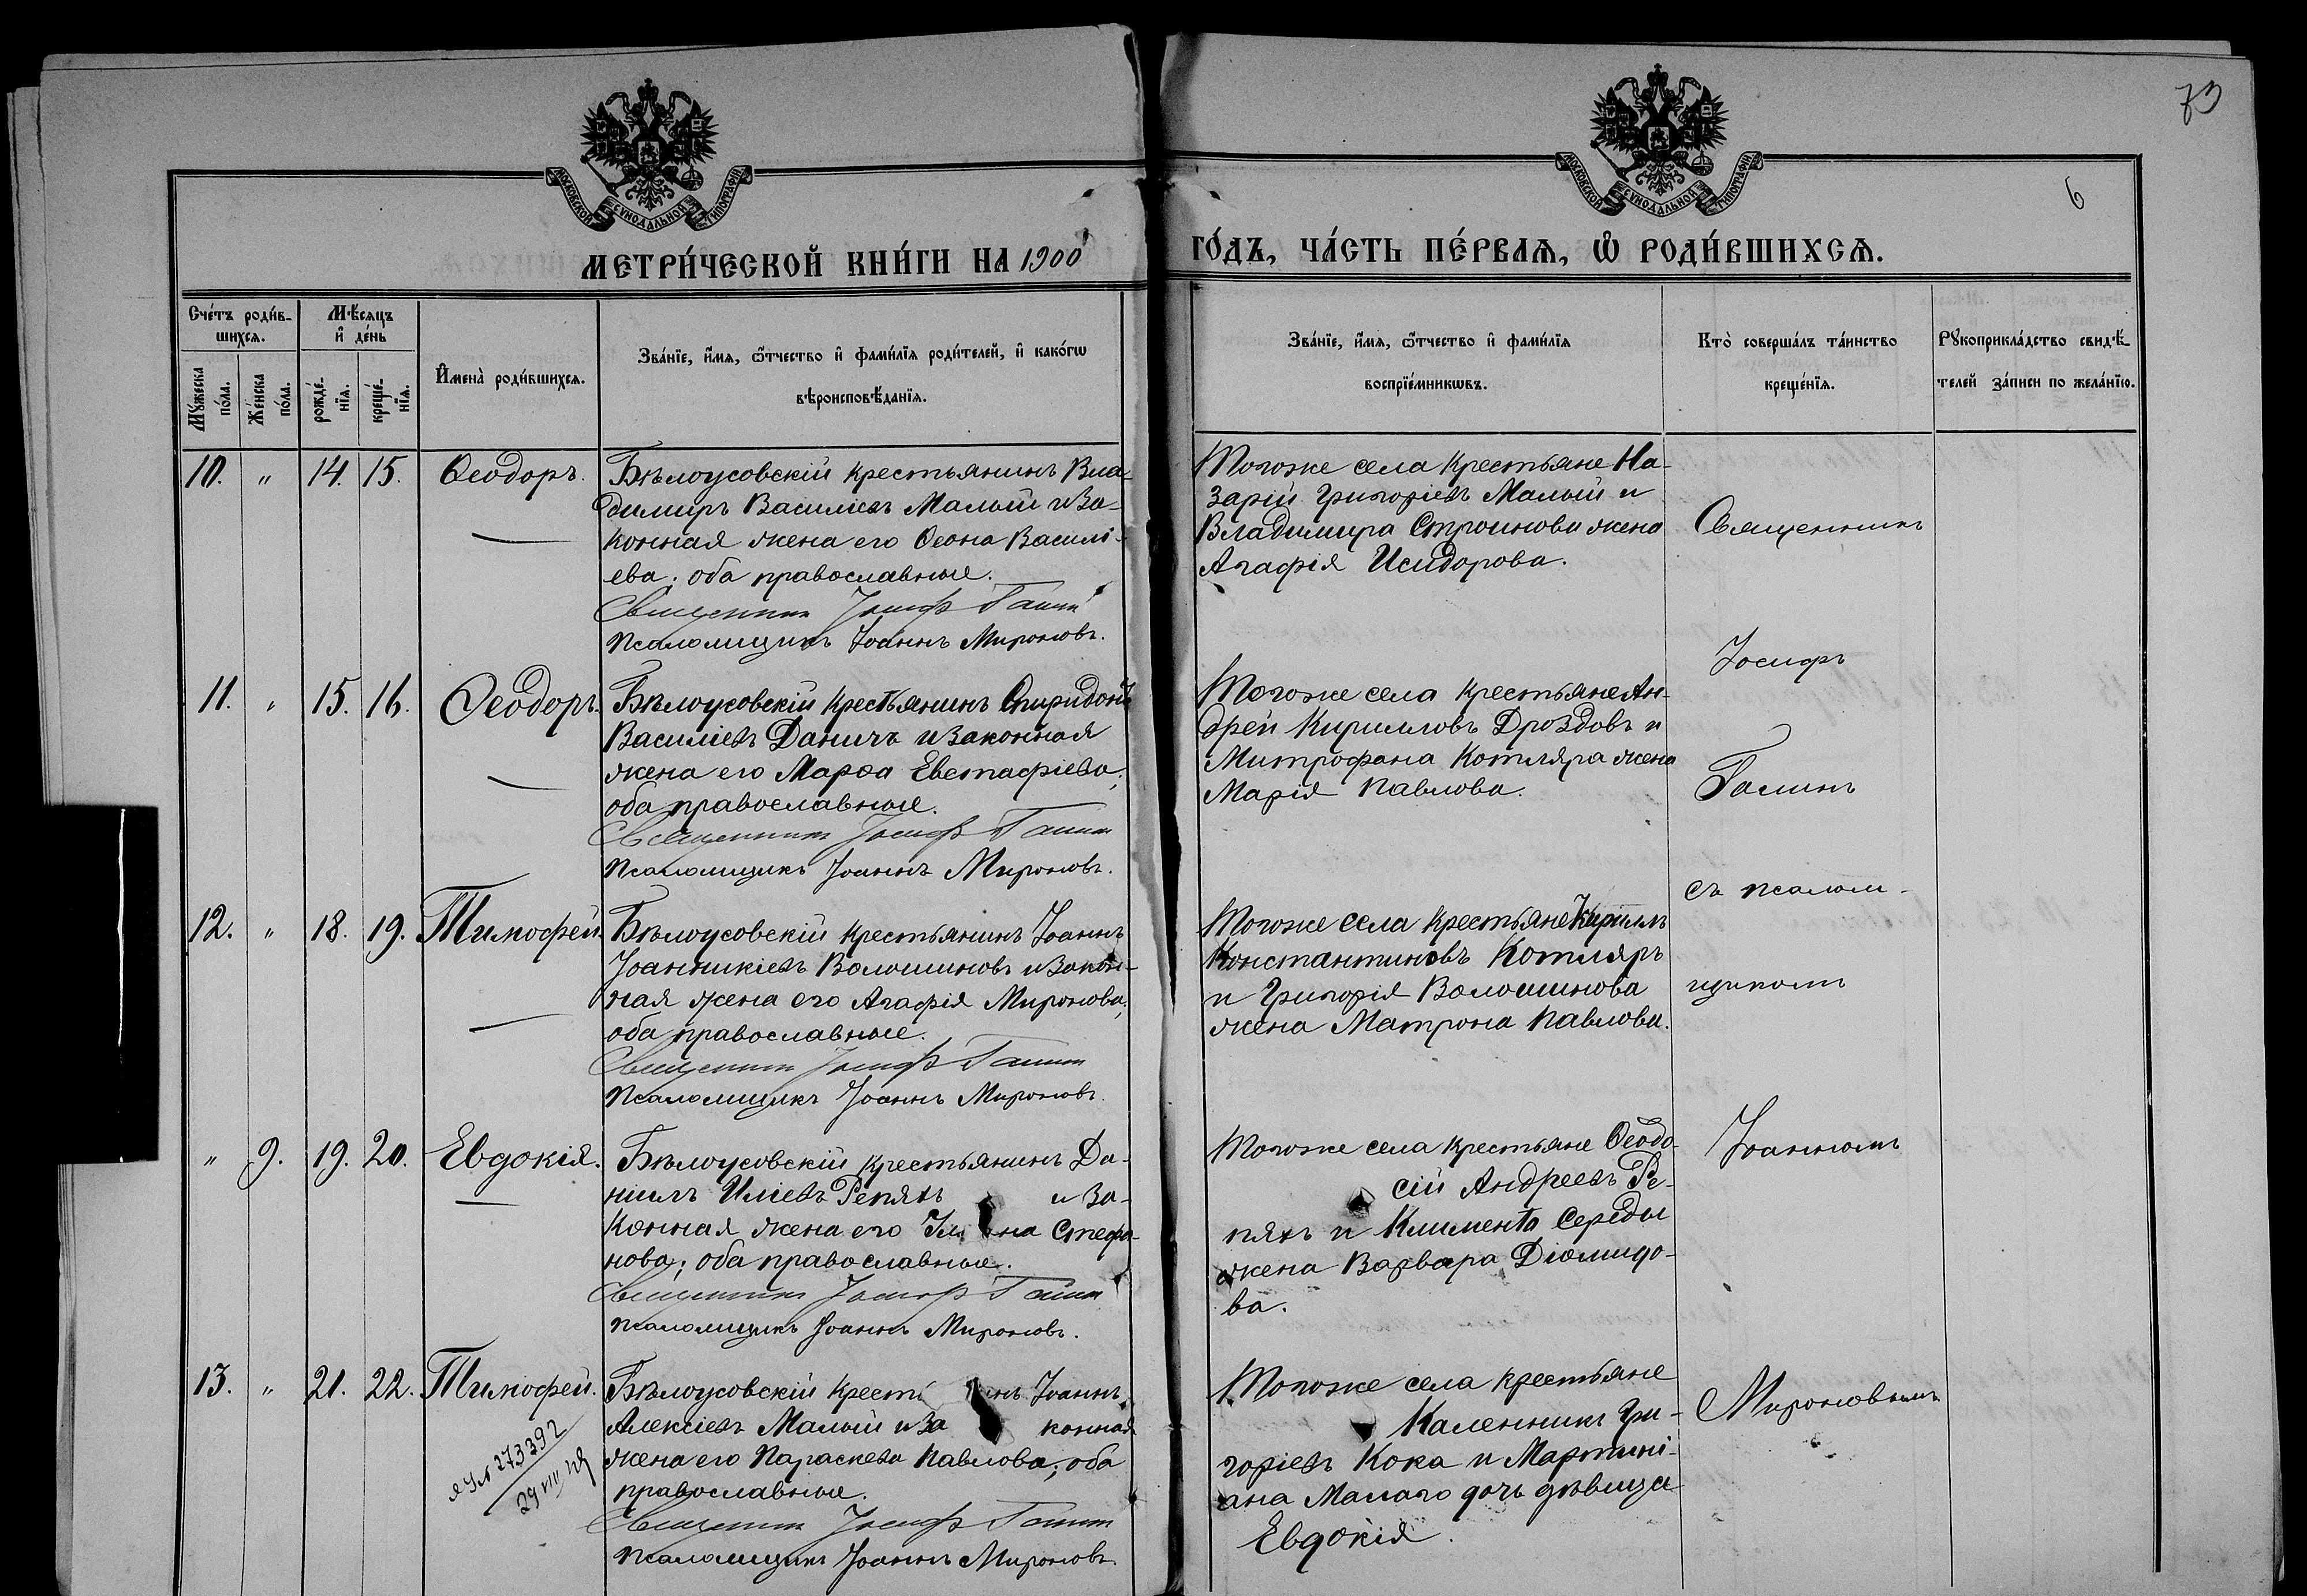 73
6
МОСКОВСКОЙ СѴНОДАЛЬНОЙ ТИПОГРАФІИ
МОСКОВСКОЙ СѴНОДАЛЬНОЙ ТИПОГРАФІИ
МЕТРИ́ЧЕСКОЙ КНИ́ГИ НА 1900
ГО́ДЪ, ЧА́СТЬ ПЕ́РВАѦ, Ѡ҆ РОДИ́ВШИХСѦ.
Сче́тъ роди́в-
шихсѧ.
Мѣ́сѧцъ
и҆ де́нь
Мꙋ́жеска
по́ла.
Же́нска
по́ла.
рожде́-
нїѧ.
креще́-
нїѧ.
И҆мена̀ роди́вшихсѧ.
Зва́нїе, и҆́мѧ, ѻ҆́тчество и҆ фами́лїѧ роди́телей, и҆ како́гѡ
вѣроисповѣ́данїѧ.
Зва́нїе, и҆́мѧ, ѻ҆́тчество и҆ фами́лїѧ
воспрїе́мникѡвъ.
Кто̀ соверша́лъ та́инство
креще́нїѧ.
Рꙋкоприкла́дство свидѣ́-
телей за́писи по жела́нїю.
10. " 14. 15. Ѳеодоръ.
Бѣлоусовскій крестьянинъ Вла-
димиръ Василіевъ Малый и за-
конная жена его Ѳеона Василі-
ева; оба православные.
Священникъ Іосифъ Галинъ
Псаломщикъ Іоаннъ Мироновъ.
Тогоже села крестьяне На-
зарій Григоріевъ Малый и
Владимира Строинова жена
Агафія Исидорова.
11. " 15. 16. Ѳеодоръ.
Бѣлоусовскій крестьянинъ Спиридонъ
Василіевъ Даничъ и законная
жена его Марѳа Евстафіева;
оба православные.
Священникъ Іосифъ Галинъ
Псаломщикъ Іоаннъ Мироновъ.
Тогоже села крестьяне Ан-
дрей Кирилловъ Дроздовъ и
Митрофана Котляра жена
Марія Павлова.
12. " 18. 19. Тимофей.
Бѣлоусовскій крестьянинъ Іоаннъ
Іоанникіевъ Волошиновъ и закон-
ная жена его Агафія Миронова;
оба православные.
Священникъ Іосифъ Галинъ
Псаломщикъ Іоаннъ Мироновъ.
Тогоже села крестьяне Кириллъ
Константиновъ Котляръ
и Григорія Волошинова
жена Матрона Павлова.
" 9. 19. 20. Евдокія.
Бѣлоусовскій крестьянинъ Да-
ніилъ Иліевъ Репяхъ и за-
конная жена его на Стефа-
нова; оба православные.
Священникъ Іосифъ Галинъ
Псаломщикъ Іоаннъ Мироновъ.
Тогоже села крестьяне Ѳеодо-
сій Андреевъ Ре-
пяхъ и Климента Середы
жена Варвара Діомидо-
ва.
13. " 21. 22. Тимофей.
Бѣлоусовскій крестьянинъ Іоаннъ
Алексіевъ Малый и за конная
жена его Параскева Павлова; оба
православные.
Священникъ Іосифъ Галинъ
Псаломщикъ Іоаннъ Мироновъ.
273392
29 VIII
Тогоже села крестьяне
Каленникъ Гри-
горіевъ Кока и Мартині-
ана Малаго дочь дѣвица
Евдокія.
Священникъ
Іосифъ
Галинъ
съ псалом-
щикомъ
Іоанномъ
Мироновымъ